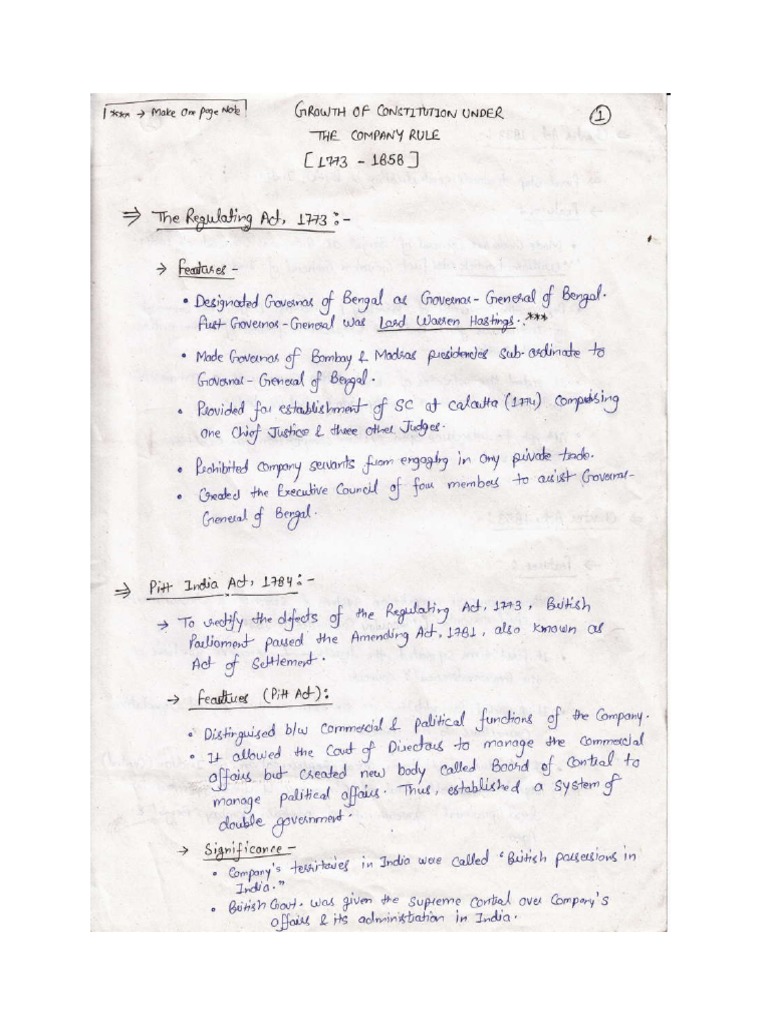 *** → Make One page Note
GROWTH OF CONSTITUTION UNDER
THE COMPANY RULE
[1773 - 1858]
1
⇒ The Regulating Act, 1773 :-
→ Features -
• Designated Governor of Bengal as Governor-General of Bengal.
First Governor-General was Lord Warren Hastings. ***
• Made Governor of Bombay & Madras presidencies sub-ordinate to
Governor-General of Bengal.
• Provided for establishment of SC at Calcutta (1774) comprising
one Chief Justice & three other Judges.
• Prohibited company servants from engaging in any private trade.
• Created the Executive Council of four members to assist Governor-
General of Bengal.
⇒ Pitt India Act, 1784 :-
→ To rectify the defects of the Regulating Act, 1773, British
Parliament passed the Amending Act, 1781, also known as
Act of Settlement.
→ Features (Pitt Act) :
• Distinguised b/w commercial & political functions of the Company.
• It allowed the Court of Directors to manage the commercial
affairs but created new body called Board of Control to
manage political affairs. Thus, established a system of
double government.
→ Significance -
• Company's territories in India were called "British possessions in
India."
• British Govt. was given the supreme control over Company's
affairs & its administration in India.